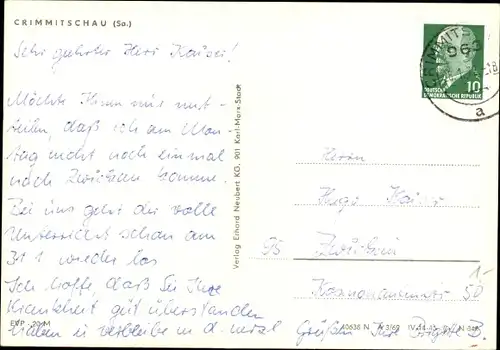 CRIMMITSCHAU (Sa.)
Sehr geehrter Herr Kaiser!
Möchte Ihnen nur mit-
teilen, daß ich am Mon-
tag nicht noch einmal
nach Zwickau komme.
Bei uns geht der volle
Unterricht schon am
31 1 wieder los
Ich hoffe, daß Sie Ihre
Krankheit gut überstanden
haben u verbleibe m d
Grüßen Ihre Brigitte B.
EVP -,20 M
Verlag Erhard Neubert KG, 901 Karl-Marx-Stadt
DEUTSCHE
DEMOKRATISCHE REPUBLIK
10
CRIMMITSCHAU
963
a
Herrn
Hugo Kaiser
95 Zwickau
50
1-